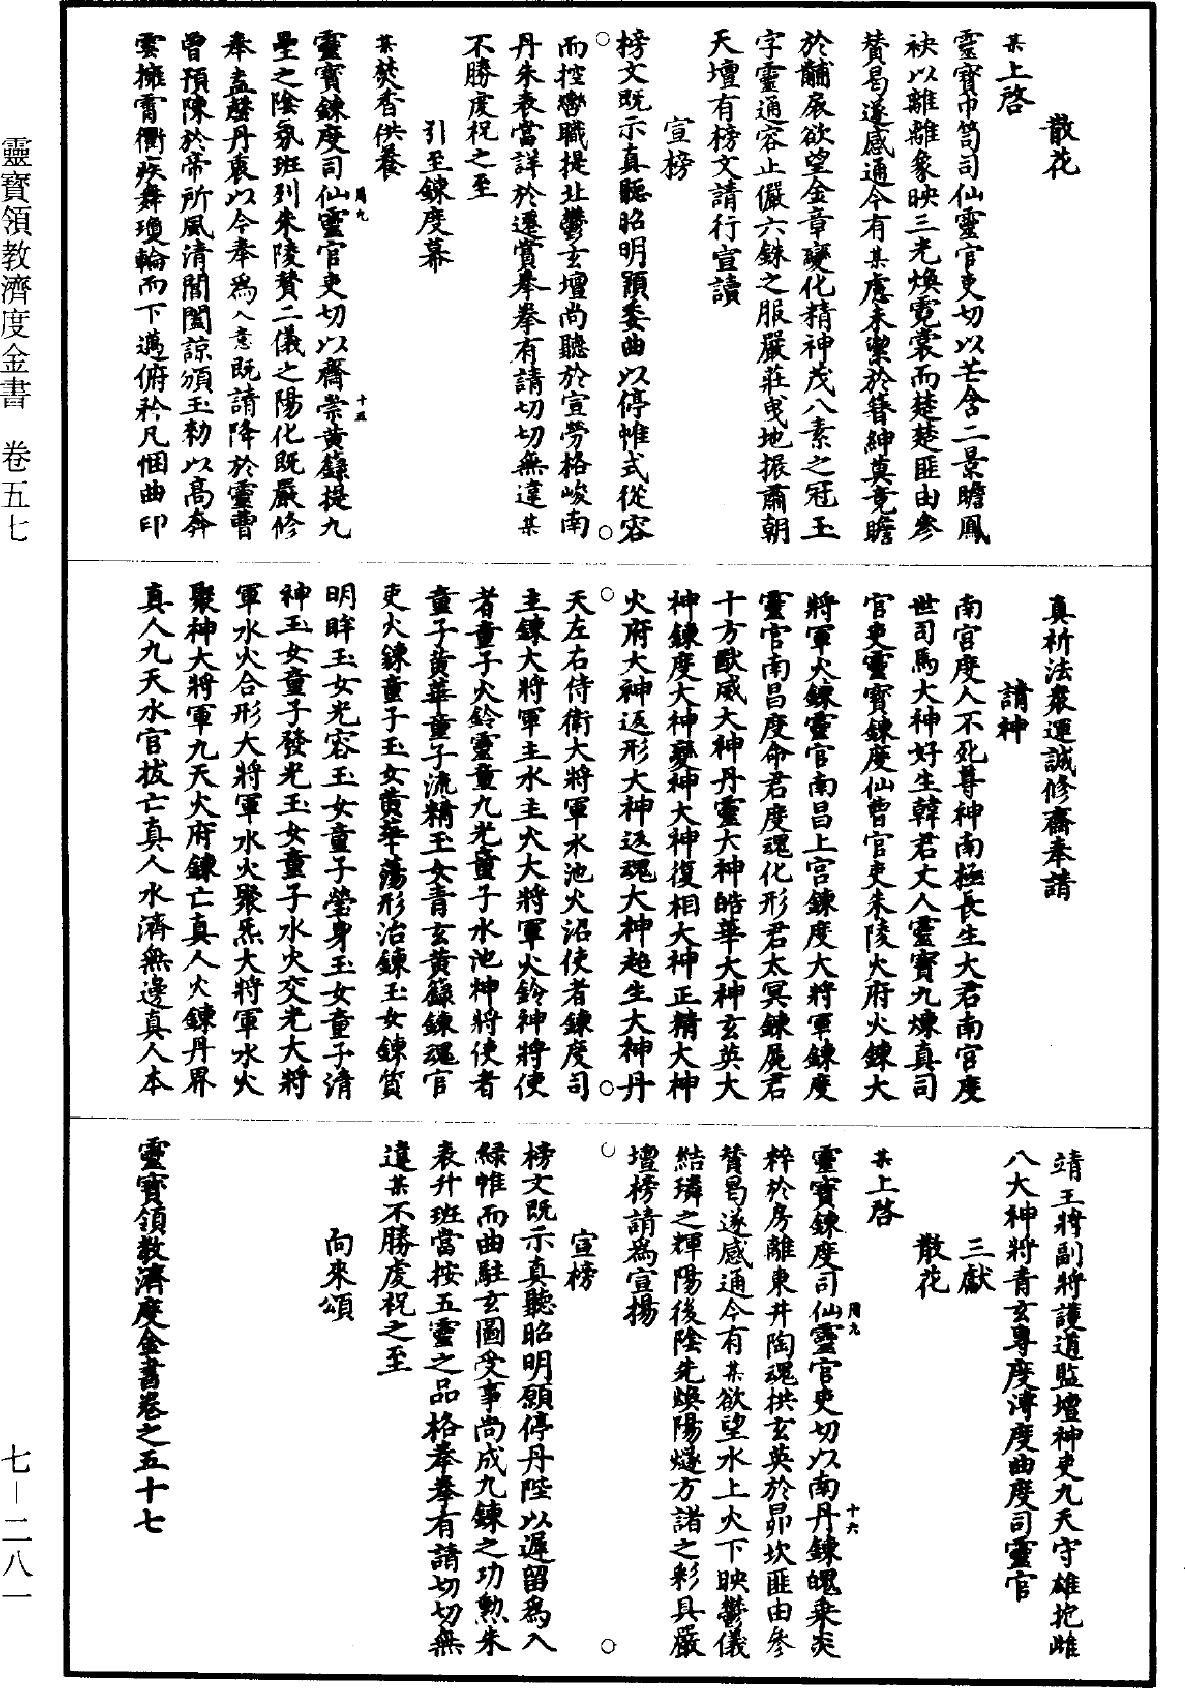 散花
某上啓
靈寶巾笥司仙靈官吏切以芒含二景瞻鳳
袂以離離象映三光煥霓裳而楚楚匪由參
賛曷遂感通今有某慮未潔於簪紳莫竟瞻
於黼扆欲望金章變化精神茂八素之冠玉
字靈通容止儼六銖之服嚴莊曵地振肅朝
天壇有榜文請行宣讀
宣榜
榜文既示真聽昭明願委曲以停帷式從容
而控轡職提北鬱玄壇尚聽於宣勞格峻南
丹朱表當詳於遷賞拳拳有請切切無違某
不勝虔祝之至
引至鍊度幕
某焚香供養
靈寶鍊度司仙靈官吏切以齋崇黄籙提九
壘之陰氛班列朱陵賛二儀之陽化既嚴修
奉盍罄丹衷以今奉爲入意既請降於靈曹
曾預陳於帝所風清閶闔諒頒玉勑以高奔
雲擁霄衢疾舞瓊輪而下邁俯矜凡悃曲印
真祈法衆運誠修齋奉請
請神
南宫度人不死尊神南極長生大君南宫度
世司馬大神好生韓君丈人靈寶九煉真司
官吏靈寶鍊度仙曹官吏朱陵火府火鍊大
將軍火鍊靈官南昌上宫鍊度大將軍鍊度
靈官南昌度命君度魂化形君太冥鍊屍君
十方猷威大神丹靈大神皓華大神玄英大
神鍊度大神變神大神復相大神正精大神
火府大神返形大神返魂大神超生大神丹
天左右侍衛大將軍水池火沼使者鍊度司
主鍊大將軍主水主火大將軍火鈴神將使
者童子火鈴靈童九光童子水池神將使者
童子黄華童子流精玉女青玄黄籙鍊魂官
吏火鍊童子玉女黄華蕩形治鍊玉女鍊質
明眸玉女光容玉女童子瑩身玉女童子清
神玉女童子發光玉女童子水火交光大將
軍水火合形大將軍水火聚炁大將軍水火
聚神大將軍九天火府鍊亡真人火鍊丹界
真人九天水官拔亡真人水濟無邊真人本
靖王將副將護道監壇神吏九天守雄抱雌
八大神將青玄專度溥度曲度司靈官
三獻
散花
某上啓
靈寶鍊度司仙靈官吏切以南丹鍊魄乘炎
粹於房離東井陶魂拱玄英於昴坎匪由參
賛曷遂感通今有某欲望水上火下映鬱儀
結璘之輝陽後陰先煥陽燧方諸之彩具嚴
壇榜請爲宣揚
宣榜
榜文既示真聽昭明願停丹陛以遲留爲入
緑帷而曲駐玄圖受事尚成九鍊之功勲朱
表升班當按五靈之品格拳拳有請切切無
違某不勝虔祝之至
向來頌
靈寶領教濟度金書卷之五十七
同九
十五
同九
十六
靈寶領教濟度金書 卷五七
七－二八一